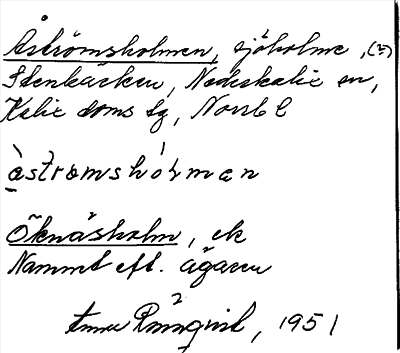 Åströmsholmen, sjöholme, (2)
Stenbäcken, Nederkalix sn,
Kalix doms lg, Norrb l
åströmshólman
Öknäsholm, ek
Namnet eft. ägaren
Anna 1951